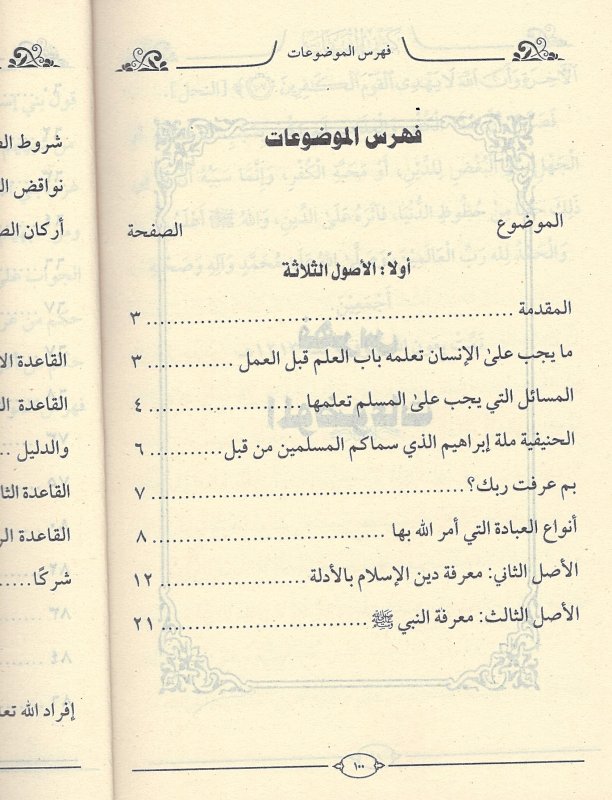 فهرس الموضوعات
فهرس الموضوعات
الموضوع الصفحة
أولاً: الأصول الثلاثة
المقدمة ........ ٣
ما يجب على الإنسان تعلمه باب العلم قبل العمل ........ ٣
المسائل التي يجب على المسلم تعلمها ........ ٤
الحنيفية ملة إبراهيم الذي سماكم المسلمين من قبل ........ ٦
بم عرفت ربك؟ ........ ٧
أنواع العبادة التي أمر الله بها ........ ٨
الأصل الثاني: معرفة دين الإسلام بالأدلة ........ ١٢
الأصل الثالث: معرفة النبي ﷺ ........ ٢١
١٠٠
شروط
نواقض
أركان
القاعدة
القاعدة
والدليل ..
القاعدة
القاعدة
شركًا.....
إفراد الله